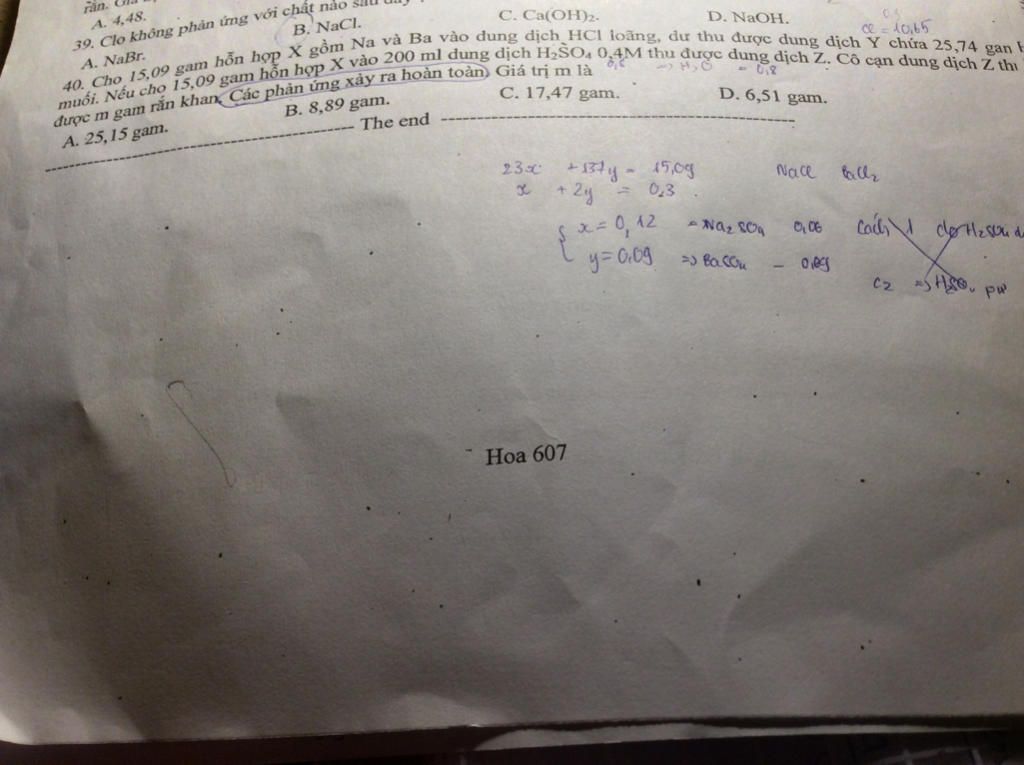 A. 4,48.
C. Ca(OH)₂.
D. NaOH.
39. Clo không phản ứng với chất nào sau đây
A. NaBr.
B. NaCl.
Cl = 10,65
40. Cho 15,09 gam hỗn hợp X gồm Na và Ba vào dung dịch HCl loãng, dư thu được dung dịch Y chứa 25,74 gan
muối. Nếu cho 15,09 gam hỗn hợp X vào 200 ml dung dịch H₂SO₄ 0,4M thu được dung dịch Z. Cô cạn dung dịch Z thu
được m gam rắn khan. Các phản ứng xảy ra hoàn toàn. Giá trị m là
A. 25,15 gam.
B. 8,89 gam.
C. 17,47 gam.
D. 6,51 gam.
The end
23x + 137y = 15,09 NaCl BaCl₂
x + 2y = 0,3
x = 0,12 ⇒ Na₂SO₄ 0,06 Cách 1
y = 0,09 ⇒ BaSO₄ - 0,09
C2 ⇒ H₂SO₄ pư
Hoa 607